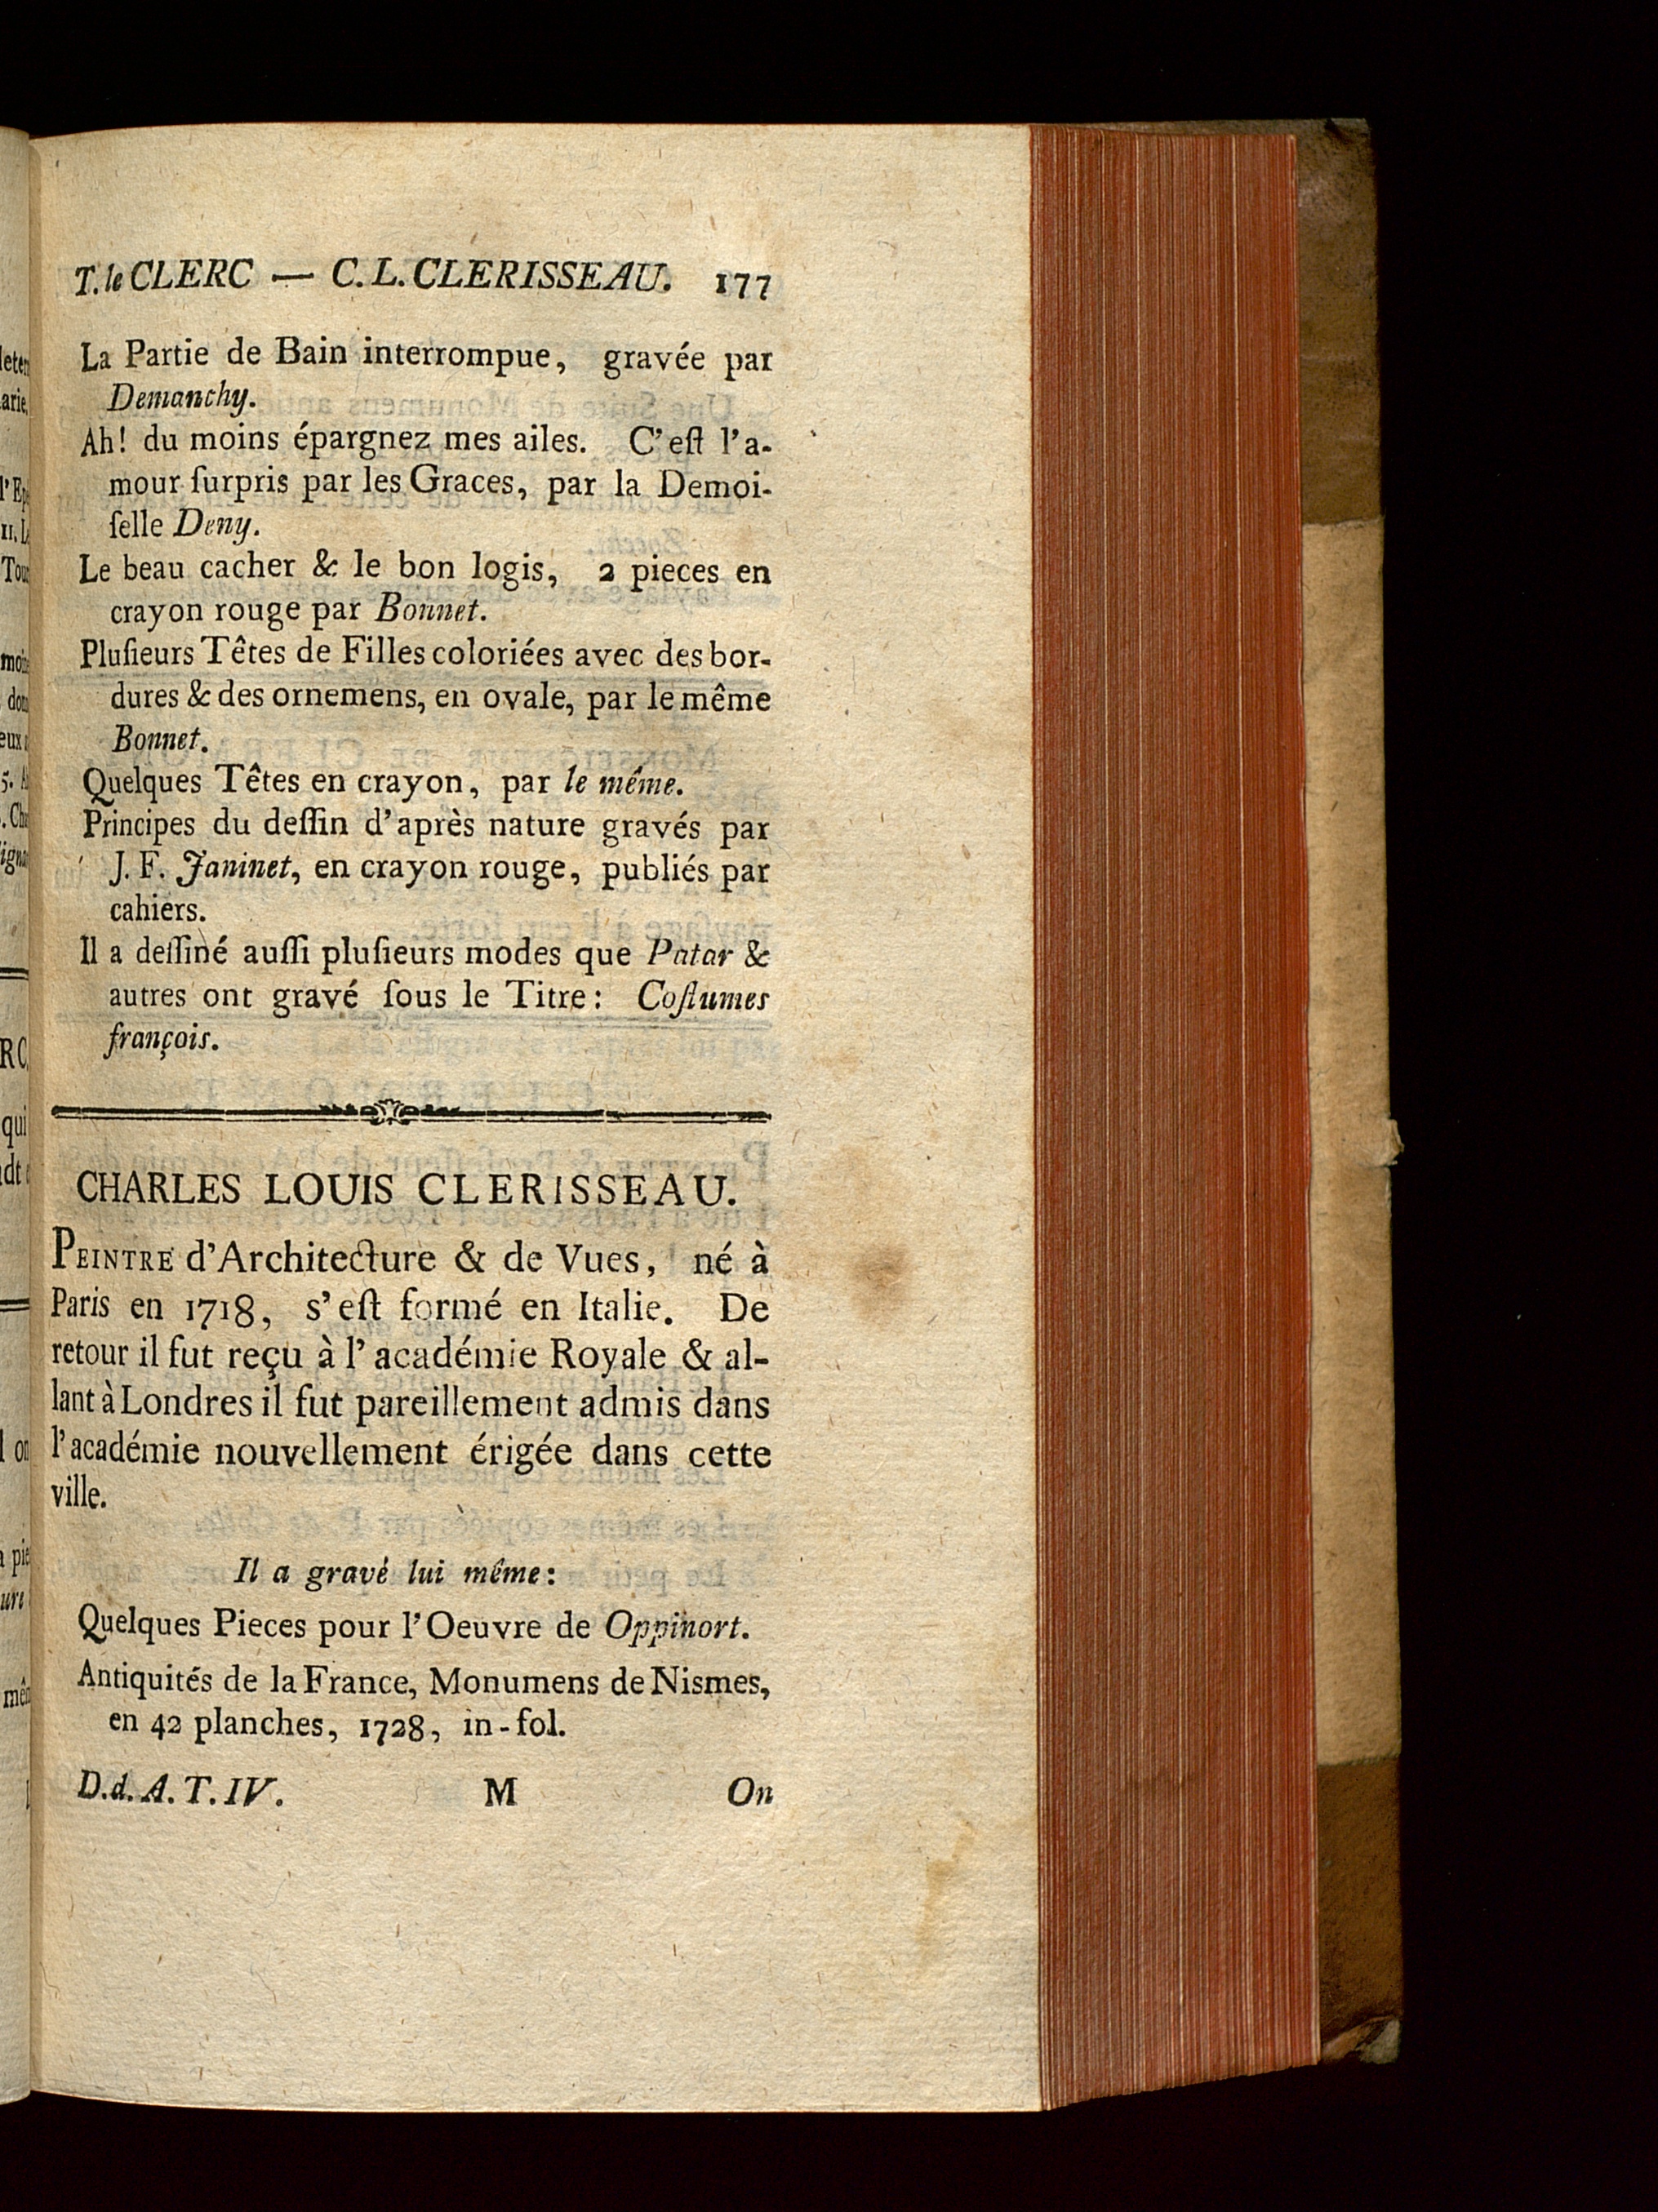 T. le CLERC — C. L. CLERISSEAU. 177
La Partie de Bain interrompue, gravée par
Demanchy.
Ah! du moins épargnez mes ailes. C'eſt l'a-
mour ſurpris par les Graces, par la Demoi-
ſelle Deny.
Le beau cacher & le bon logis, 2 pieces en
crayon rouge par Bonnet.
Pluſieurs Têtes de Filles coloriées avec des bor-
dures & des ornemens, en ovale, par le même
Bonnet.
Quelques Têtes en crayon, par le même.
Principes du deſſin d'après nature gravés par
J. F. Janinet, en crayon rouge, publiés par
cahiers.
Il a deſſiné auſſi pluſieurs modes que Patar &
autres ont gravé ſous le Titre: Coſtumes
françois.
CHARLES LOUIS CLERISSEAU.
PEINTRE d'Architecture & de Vues, né à
Paris en 1718, s'eſt formé en Italie. De
retour il fut reçu à l'académie Royale & al-
lant à Londres il fut pareillement admis dans
l'académie nouvellement érigée dans cette
ville.
Il a gravé lui même:
Quelques Pieces pour l'Oeuvre de Oppinort.
Antiquités de la France, Monumens de Nismes,
en 42 planches, 1728, in-fol.
D. d. A. T. IV. M On